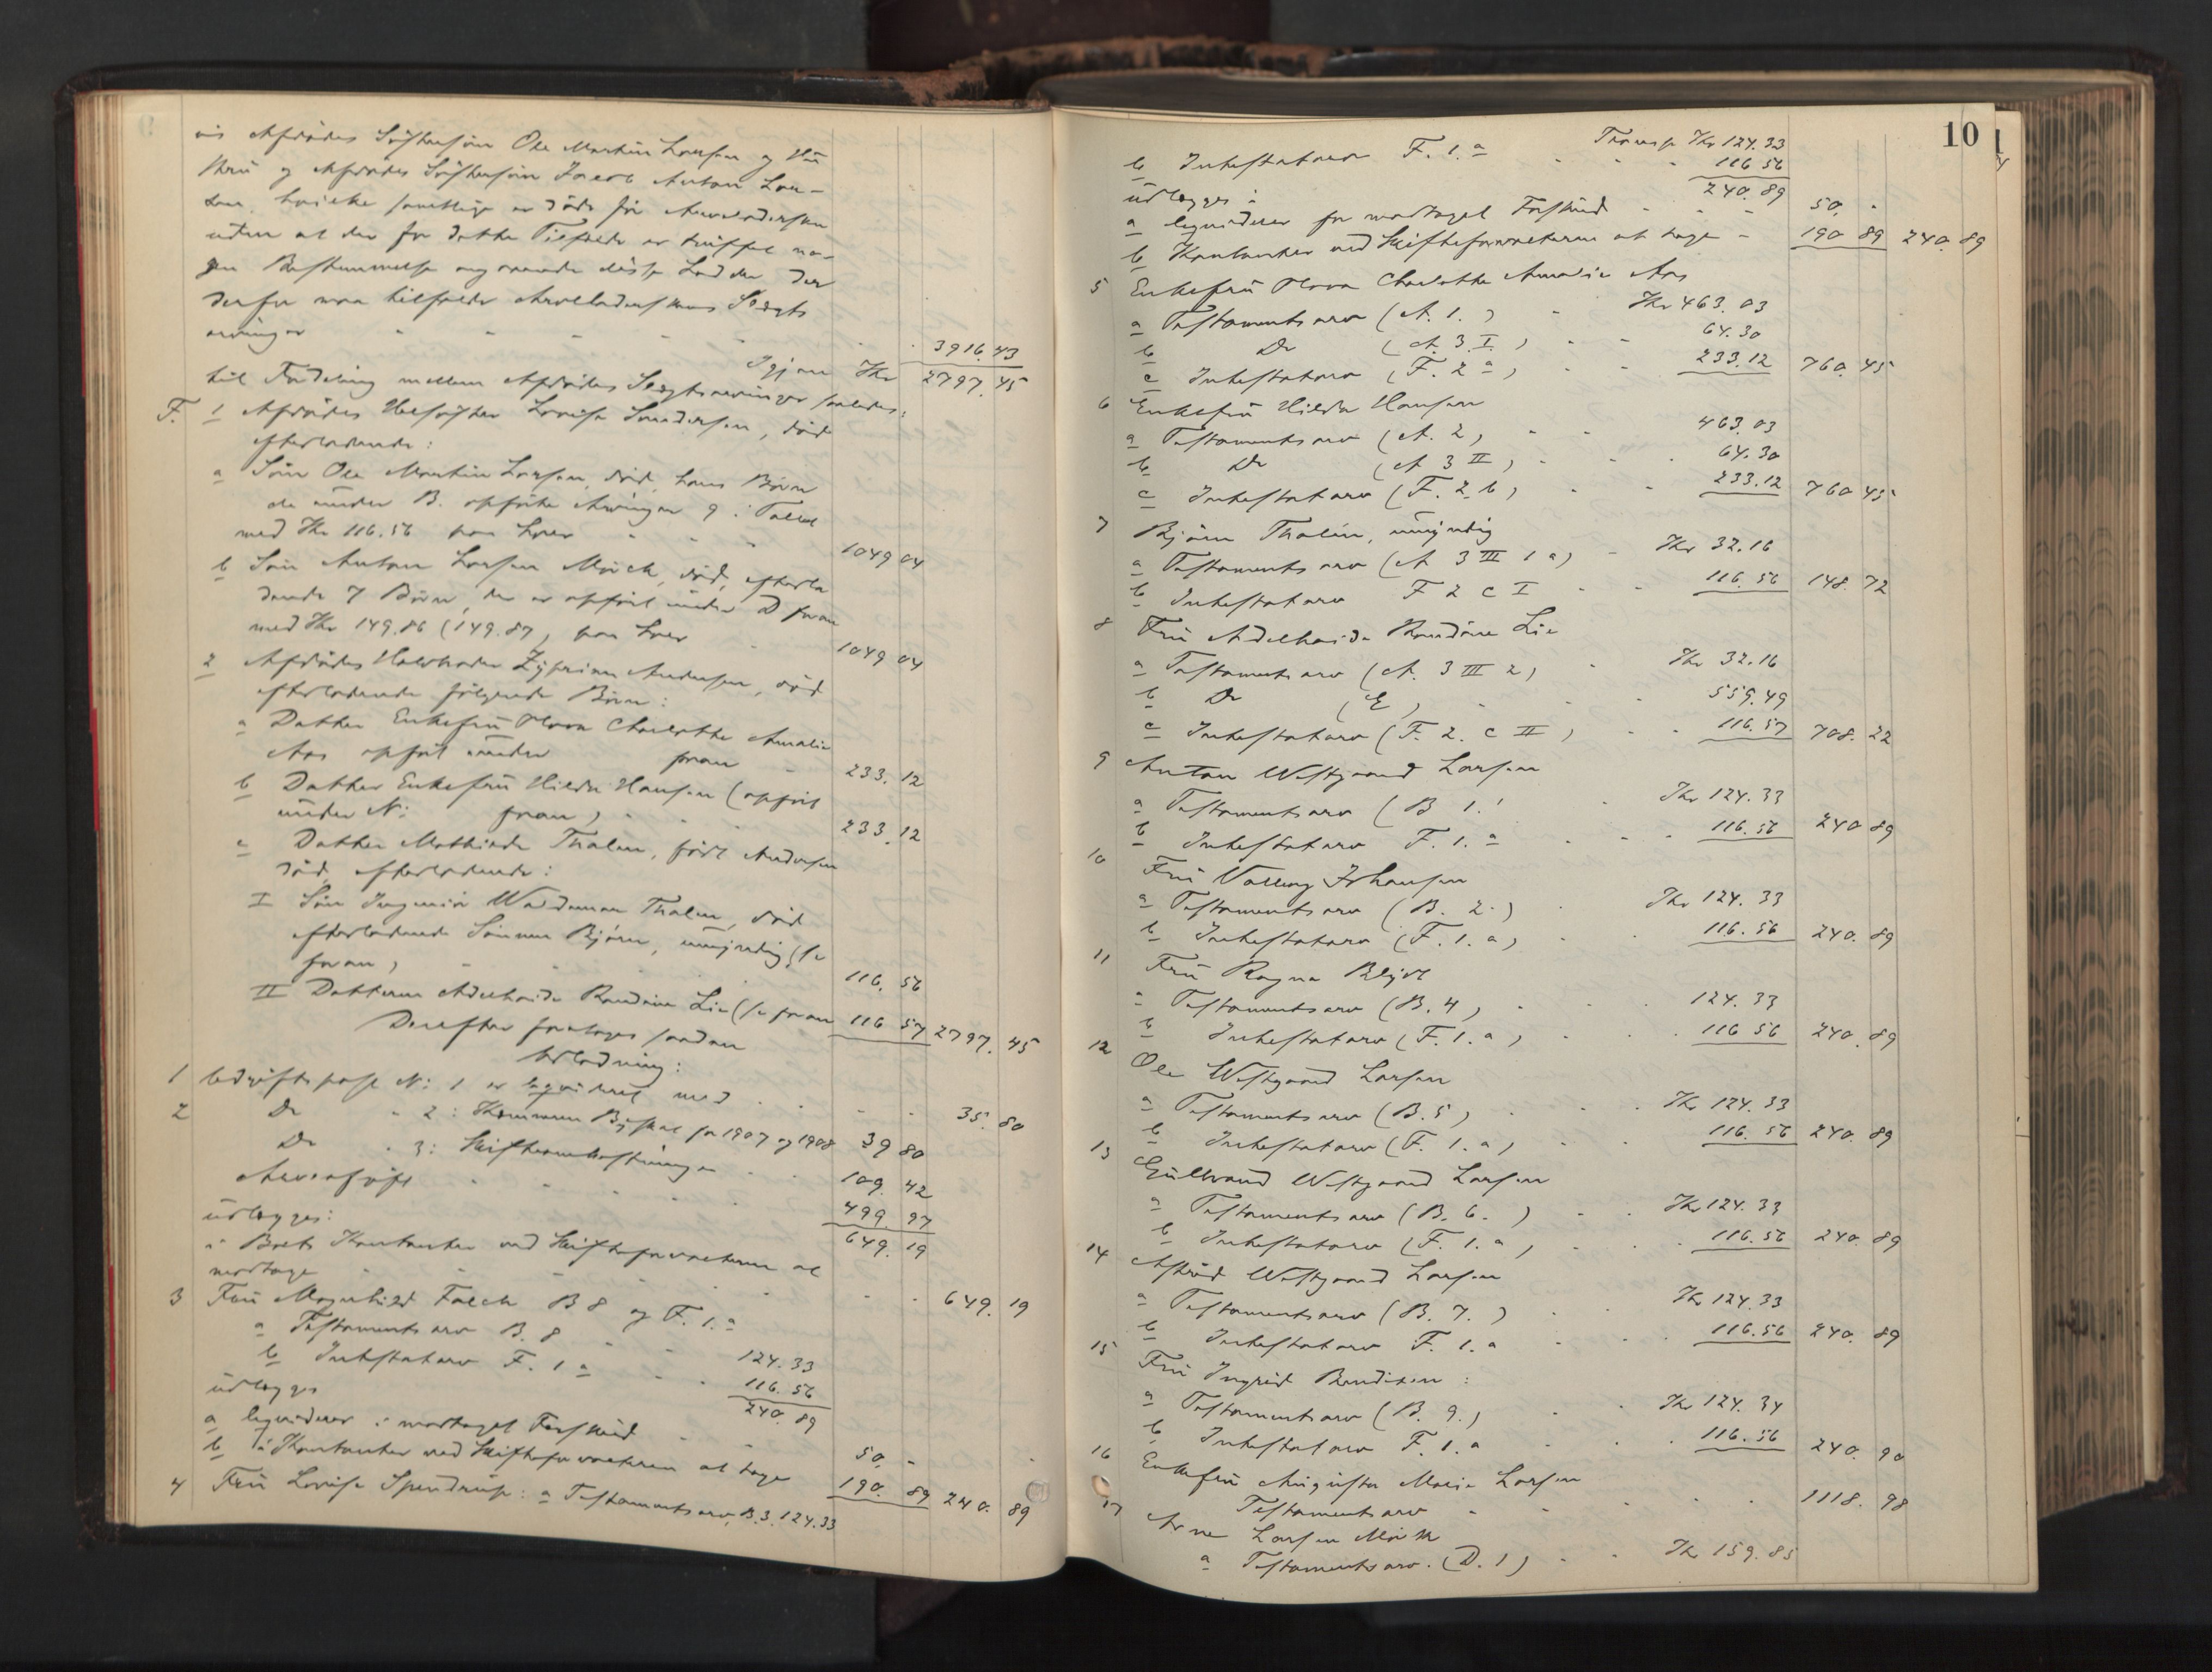 Afdødes Søstersøn Ole Martin Larsen og
og Afdødes Søstersøn Jacob Anton Lar-
sen, hvilke samtlige er døde før Arveladersken
uden at der for dette Tilfælde er truffet no-
gen Bestemmelse angaaende disse Lodder der
derfor maa tilfalde Arveladerskens Slægts
arvinger - - - - - 3916.43
Igjen Kr 2797.45
til Fordeling mellem Afdødes Slægtsarvinger saaledes:
F. 1 Afdødes Helsøster Lovise Andersen, død
efterladende:
a Søn Ole Martin Larsen, død, hans Børn
de under B. opførte Arvinger 9 i Tallet
med Kr 116.56 paa hver - - - 1049 04
b Søn Anton Larsen Mørch, død, efterla
dende 7 Børn, der er opført under D foran
med Kr 149.86 (149.87) paa hver - 1049 04
2 Afdødes Halvbroder Zyprian Andersen, død
efterladende følgende Børn:
a Datter Enkefru Nora Charlotte Amalie
Aas opført under foran - 233.12
b Datter Enkefru Hilda Hansen (opført
under N: foran) - - 233.12
c Datter Mathilde Thalin, født Andersen
død, efterladende:
I Søn Ingeniør Waldemar Thalin, død
efterladende Sønnen Bjørn, umyndig (se
foran) - - - - 116.56
II Datteren Adelheide Randine Lie (se foran 116 57 2797.45
Derefter foretages saadan
Udlodning:
1 Udgiftspost N: 1 er liquideret med - - - 35.80
2 Do - 2: Kommune Byskat for 1907 og 1908 39 80
Do - 3: Skifteomkostninger - - 109.42
Arveafgift - - - - 499.97
udlægges: 649.19
i Boets Kontanter ved Skifteforvalteren at
modtage - - - - - - 649.19
3 Fru Magnhild Falch B 8 og F. 1. a
a Testamentsarv B. 8 - - 124.33
b Intestatarv F. 1 a - - 116.56
udlægges 240.89
a liquiderer i modtaget Forskud - 50. -
b i Kontanter ved Skifteforvalteren at tage 190.89 240.89
4 Fru Lovise Spendrup: a Testamentsarv, B.3. 124.33
10
Transp. Kr 124.33
b Intestatarv F. 1. a - - - 116 56
udlægges: 240.89
a liquiderer for modtaget Forskud - - - 50. -
b Kontanter ved Skifteforvalteren at tage - 190 89 240.89
5 Enkefru Nora Charlotte Amalie Aas
a Testamentsarv (A. 1.) - Kr 463.03
b Do (A. 3. I.) - - 64.30
c Intestatarv (F. 2 a) - - 233.12 760.45
6 Enkefru Hilda Hansen
a Testamentsarv (A. 2) - - 463.03
b Do (A 3 II) - - 64.30
c Intestatarv (F. 2. b) - - 233.12 760 45
7 Bjørn Thalin, umyndig
a Testamentsarv (A 3 III 1 a) - Kr 32.16
b Intestatarv F 2 c I - - 116.56 148.72
8 Fru Adelheide Randine Lie
a Testamentsarv (A. 3 III 2) - Kr 32.16
b Do (E) - - 559.49
c Intestatarv (F. 2. c II) - - 116.57 708.22
9 Anton Westgaard Larsen
a Testamentsarv (B 1.) - Kr 124.33
b Intestatarv F. 1. a - - 116.56 240 89
10 Fru Valborg Johansen
a Testamentsarv (B. 2.) - Kr 124.33
b Intestatarv (F. 1. a) - - 116.56 240.89
11 Fru Ragna Blydt
a Testamentsarv (B. 4) - - 124.33
b Intestatarv (F. 1. a) - - 116 56 240.89
12 Ole Westgaard Larsen
a Testamentsarv (B. 5) - - Kr 124.33
b Intestatarv (F. 1. a) - - 116.56 240.89
13 Gulbrand Westgaard Larsen
a Testamentsarv (B. 6.) - - Kr 124.33
b Intestatarv (F. 1. a) - - 116.56 240.89
14 Astrid Westgaard Larsen
a Testamentsarv (B. 7.) - - Kr 124.33
b Intestatarv F. 1. a - - 116.56 240.89
15 Fru Ingrid Bendixen:
a Testamentsarv (B. 9.) - - Kr 124.34
b Intestatarv F. 1. a - - 116.56 240.90
16 Enkefru Augusta Marie Larsen
Testamentsarv - - - 1118.98
17 Arne Larsen Mørk
a Testamentsarv. (D. 1) - - Kr 159.85